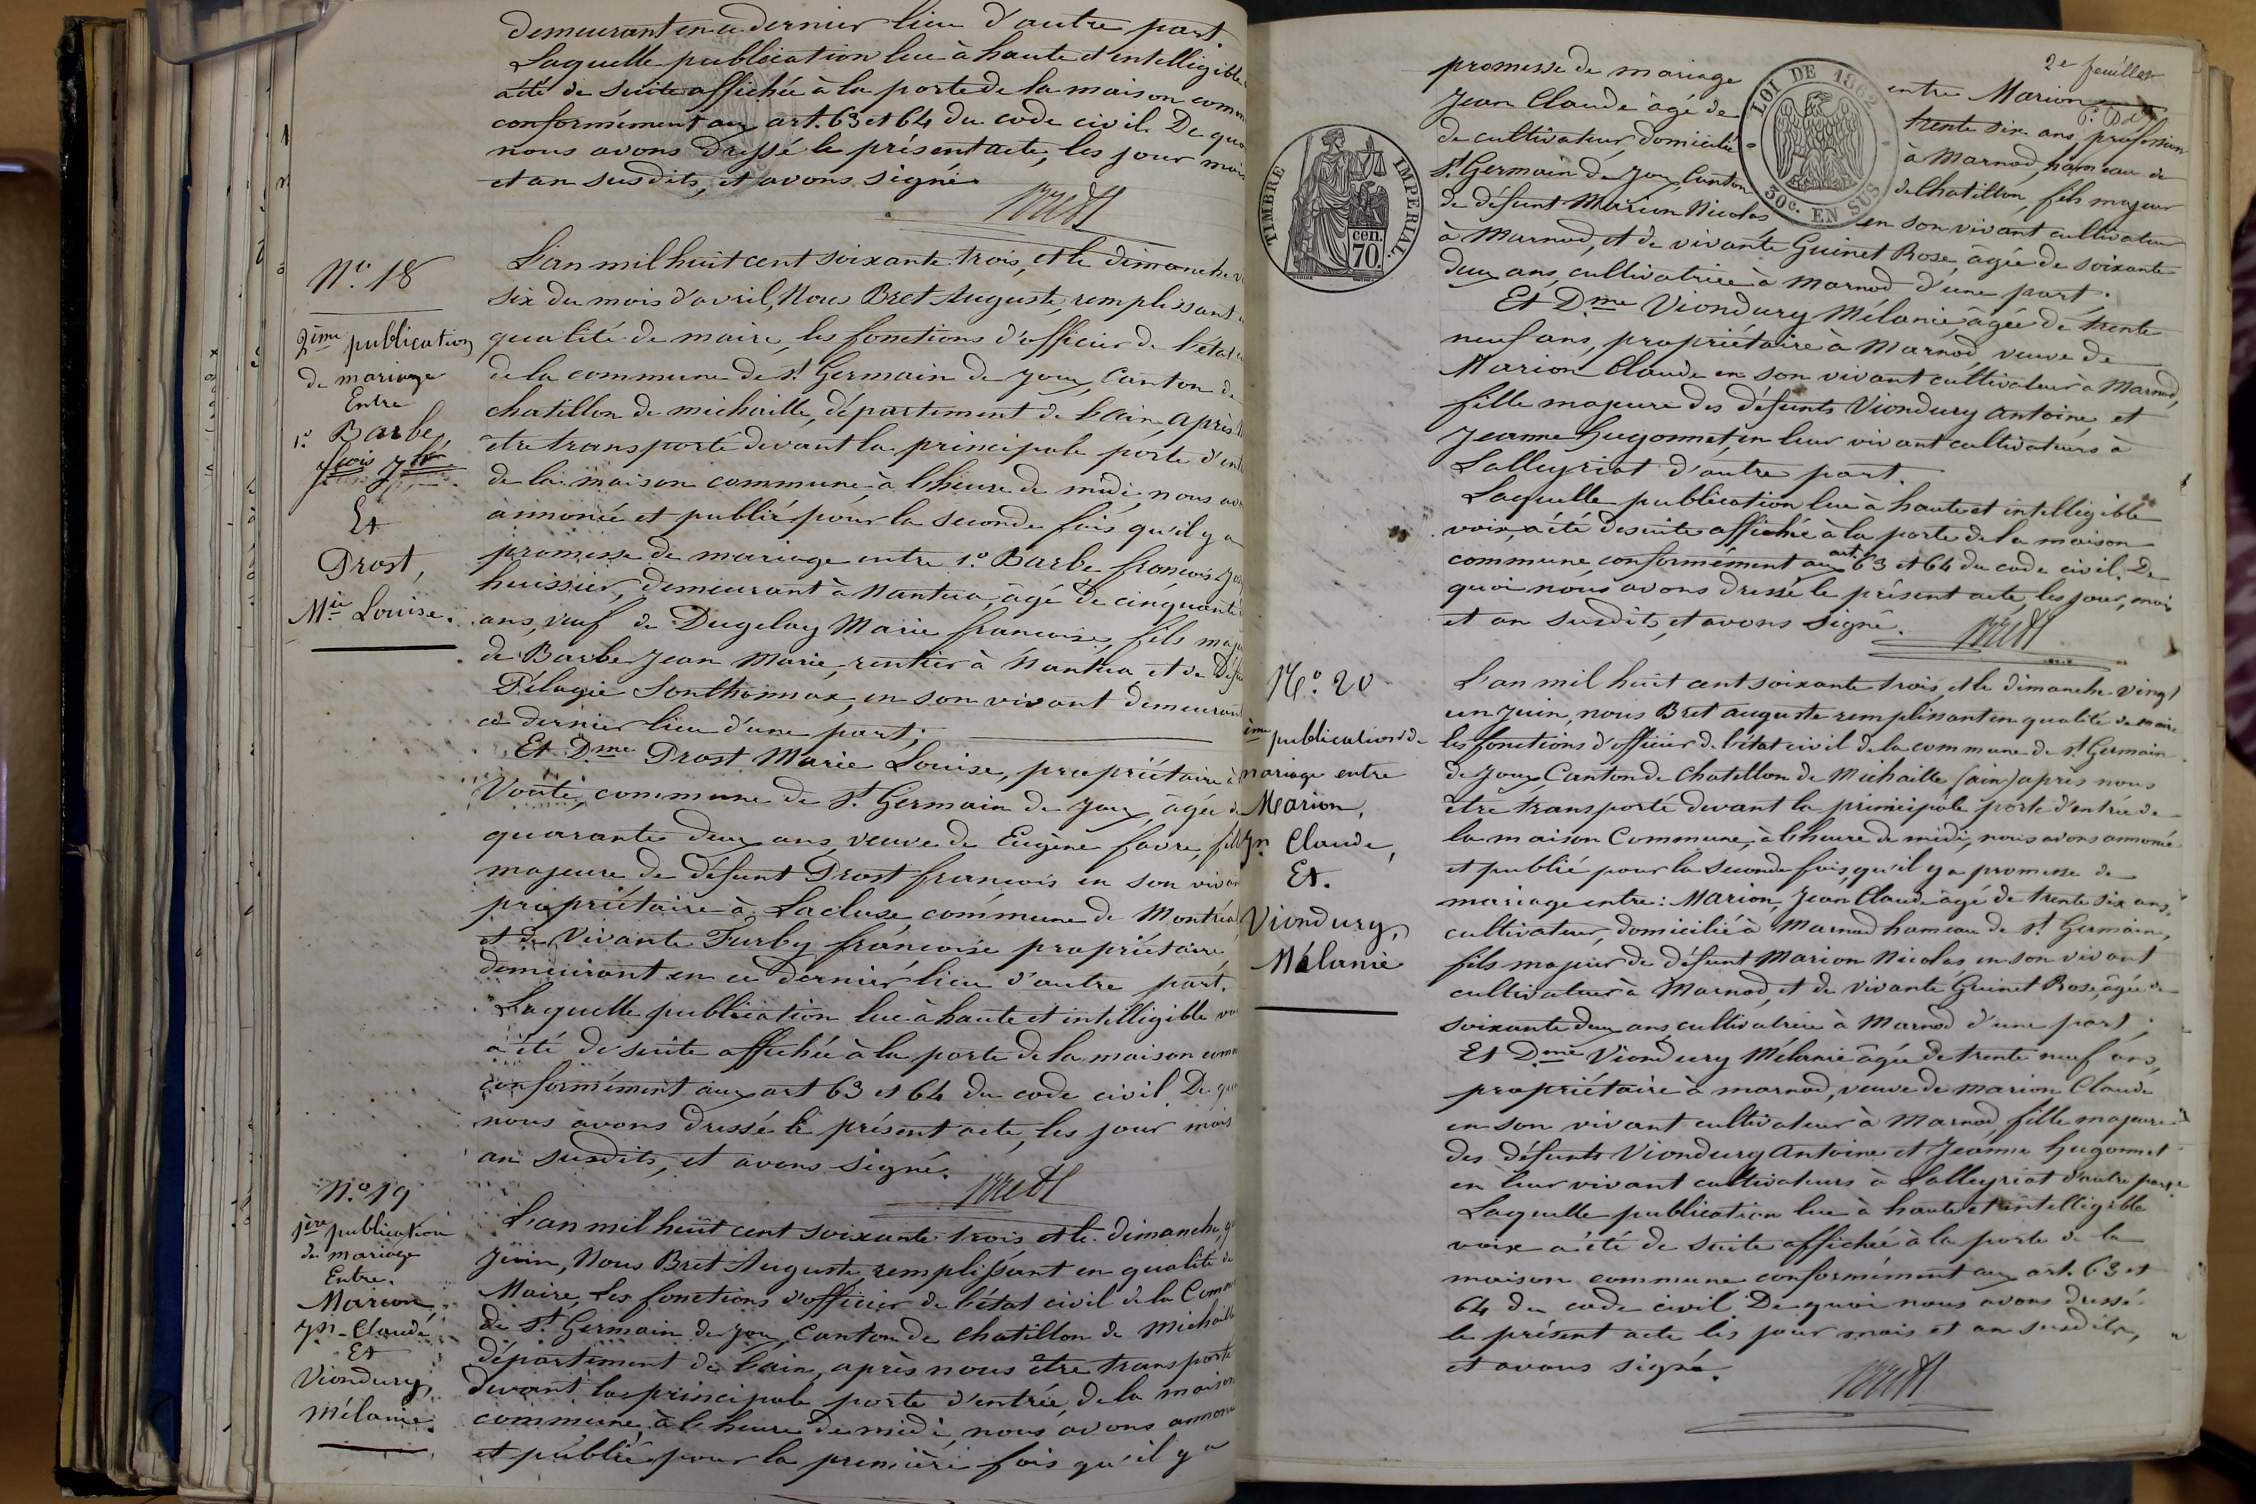 demeurant en ce dernier lieu d'autre part.
Laquelle publication lue à haute et intelligible
a été de suite affichée à la porte de la maison comm
conformément aux art. 63 et 64 du code civil. De quoi
nous avons dressé le présent acte, les jour mois
et an susdits, et avons signé.
Bret
N.º 18
2ème publication
de mariage
Entre
1.º Barbe,
Et
Prost,
Mie Louise.
L'an mil huit cent soixante trois, et le dimanche v
six du mois d'avril, Nous Bret Auguste, remplissant
qualité de maire, les fonctions d'officier de l'état
de la commune de St Germain de Joux, Canton de
chatillon de michaille, département de l'ain, après
etre transporté devant la principale porte d'ent
de la maison commune à l'heure de midi, nous av
annoncé et publié pour la seconde fois qu'il y a
promesse de mariage entre 1.º Barbe françois
huissier, demeurant à Nantua, âgé de cinquante
ans, veuf de Dugelay Marie françoise, fils maj
de Barbe Jean Marie, rentier à Nantua, et de déf
Pélagie Sonthonnax, en son vivant demeurant
ce dernier lieu d'une part;
Et Dme Prost Marie Louise, propriétaire à
Voute, commune de St Germain de Joux, âgée de
quarante deux ans, veuve de Eugène favre, fill
majeure de défunt Prost françois en son vivan
propriétaire à Lacluse, commune de Montréal
et de Vivante Turby françoise propriétaire
demeurant en ce dernier lieu d'autre part.
Laquelle publication lue à haute et intelligible vo
a été de suite affichée à la porte de la maison comm
conformément aux art 63 et 64 du code civil. De quoi
nous avons dressé le présent acte, les jour mois
an susdits, et avons signé.
Bret
N.º 19
1ère publication
de mariage
Entre.
Marion,
Jn-Claude
Et
Viondury,
Mélanie.
L'an mil huit cent soixante trois et le dimanche q
Juin, Nous Bret Auguste, remplissant en qualité de
Maire, les fonctions d'officier de l'état civil de la Comm
de St Germain de Joux, Canton de chatillon de michaille
département de l'ain, après nous être transporté
devant la principale porte d'entrée de la maison
commune, à l'heure de midi, nous avons annoncé
et publié pour la première fois qu'il y a
2e feuillet
TIMBRE IMPERIAL.
cen.
70.
LOI DE 1862
30c. EN SUS
promesse de mariage entre Marion
Jean Claude âgé de trente six ans, profession
de cultivateur, domicilié à Marnod, hameau de
St Germain de Joux Canton de Chatillon, fils majeur
de défunt Marion Nicolas en son vivant cultivateur
à Marnod, et de vivante Guinet Rose, âgée de soixante
deux ans, cultivatrice à Marnod d'une part;
Et Dme Viondury Mélanie, âgée de trente
neuf ans, propriétaire à Marnod, veuve de
Marion Claude en son vivant cultivateur à Marnod,
fille majeure des défunts Viondury Antoine, et
Jeanne Hugonnet, en leur vivant cultivateurs à
Lalleyriat d'autre part.
Laquelle publication lue à haute et intelligible
voix, a été de suite affichée à la porte de la maison
commune, conformément aux art. 63 et 64 du code civil. De
quoi nous avons dressé le présent acte, les jour, mois
et an susdits, et avons signé.
Bret
N.º 20
ème publication de
mariage entre
Marion,
Jn Claude,
Et.
Viondury,
Mélanie
L'an mil huit cent soixante trois, et le dimanche vingt
un Juin, nous Bret auguste remplissant en qualité de maire
les fonctions d'officier de l'état civil de la commune de St Germain
de Joux, Canton de Chatillon de Michaille (ain) après nous
être transporté devant la principale porte d'entrée de
la maison Commune, à l'heure de midi, nous avons annoncé
et publié pour la seconde fois qu'il y a promesse de
mariage entre: Marion, Jean Claude âgé de trente six ans,
cultivateur, domicilié à Marnod hameau de St Germain,
fils majeur de défunt Marion Nicolas, en son vivant
cultivateur à Marnod, et de vivante Guinet Rose, âgée de
soixante deux ans cultivatrice à Marnod d'une part;
Et Dme Viondury Mélanie âgée de trente neuf ans,
propriétaire à marnod, veuve de marion Claude
en son vivant cultivateur à Marnod, fille majeure
des défunts Viondury Antoine et Jeanne Hugonnet
en leur vivant cultivateurs à Lalleyriat d'autre part.
Laquelle publication lue à haute et intelligible
voix a été de suite affichée à la porte de la
maison commune conformément aux art. 63 et
64 du code civil. De quoi nous avons dressé
le présent acte les jour mois et an susdits,
et avons signé.
Bret